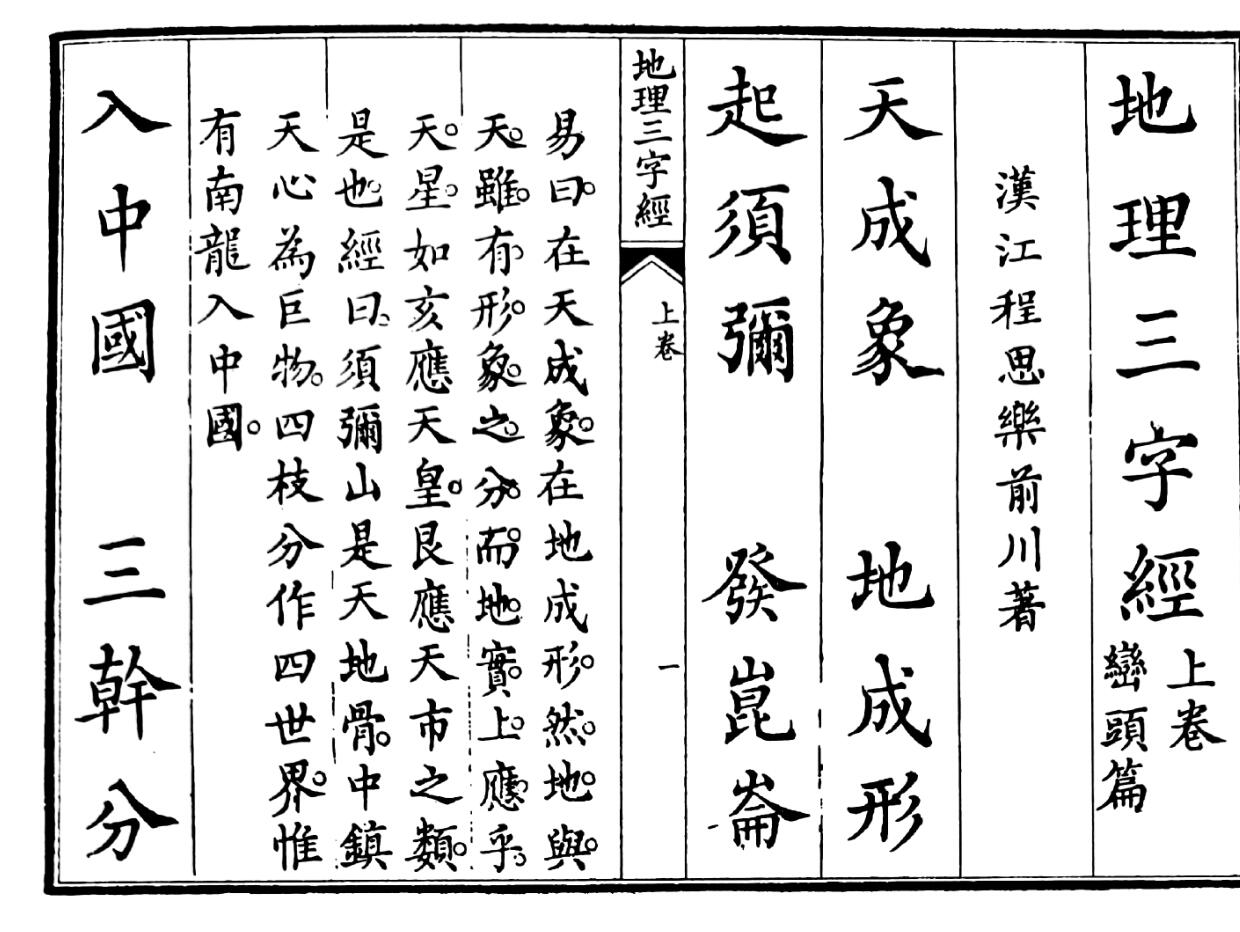 地理三字經
上卷
巒頭篇
漢江程思樂前川著
天成象 地成形
起須彌 發崑崙
地理三字經 上卷 一
易曰。在天成象。在地成形。然。地。與。
天。雖。有。形。象。之。分。而。地。實。上。應。乎。
天。星。如亥應天皇。艮應天市之類。
是也。經曰。須彌山是天地骨。中鎮
天心為巨物。四枝分作四世界。惟
有南龍入中國。
入中國 三幹分